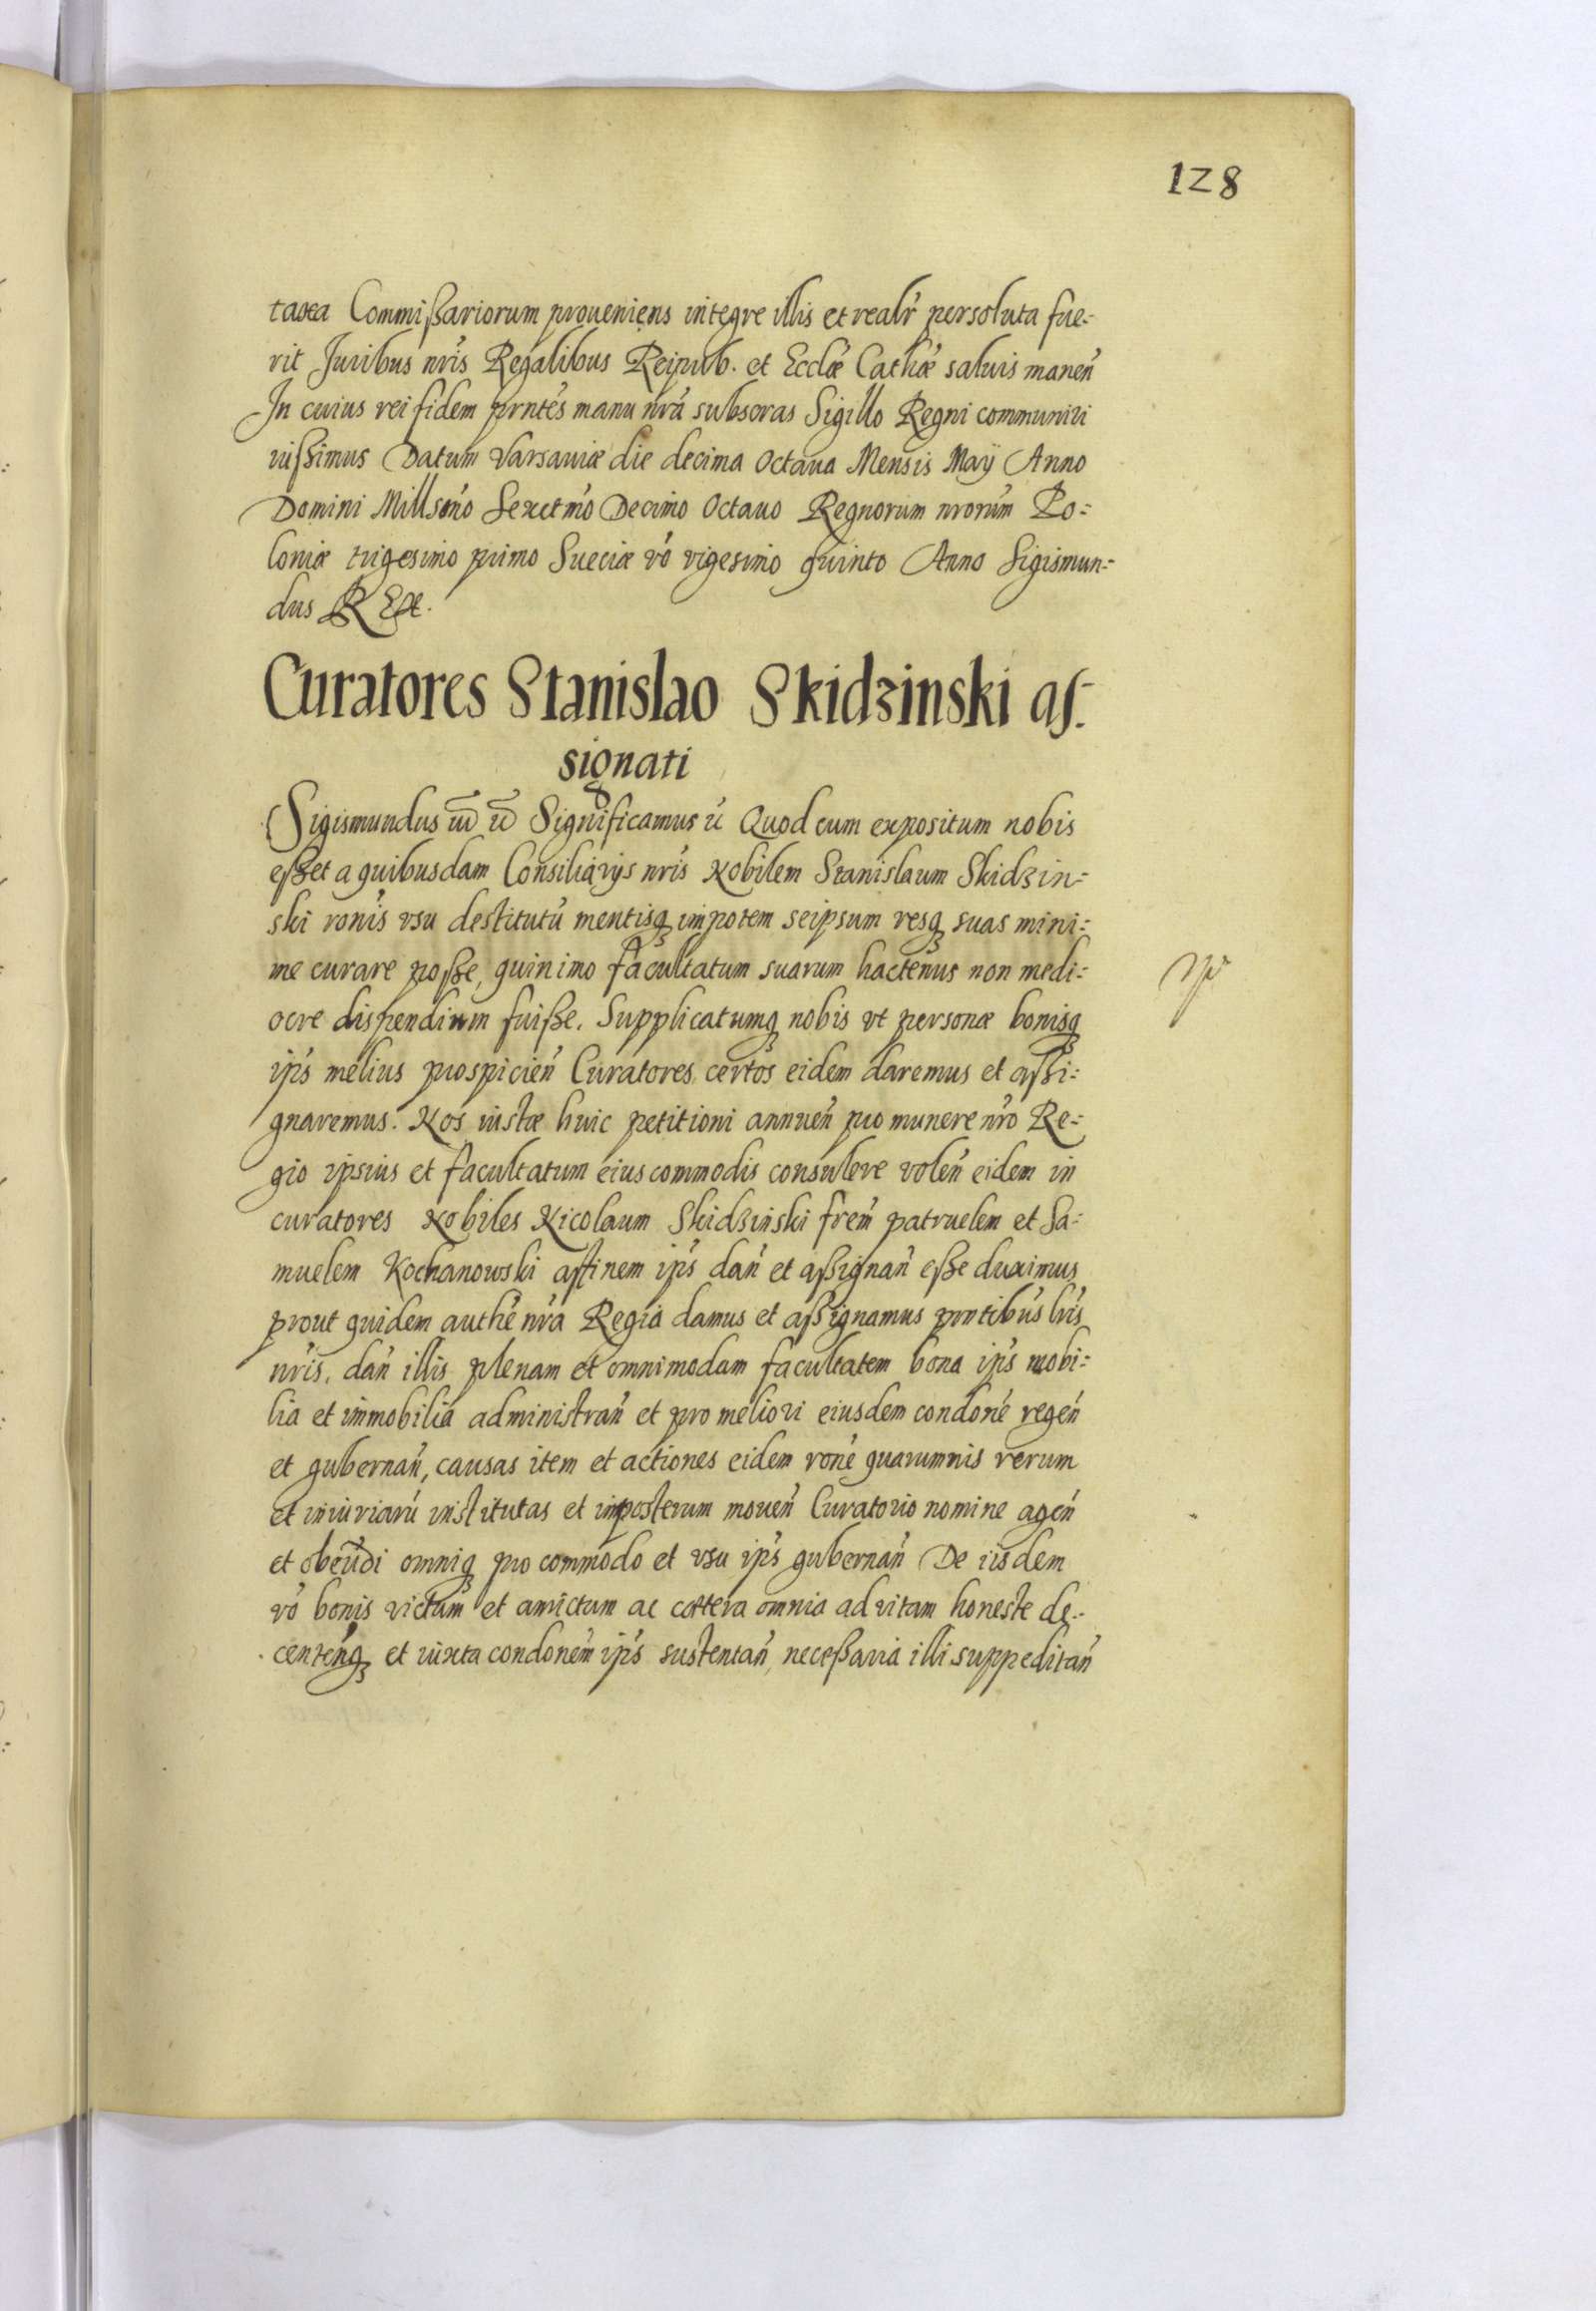 128
taxa Commißariorum proueniens integre illis et realr̃ persoluta fue-
rit Juribus nr̃is Regalibus Reipub. et Eccłæ Cathæ saluis maneñ
In cuius rei fidem prñtes manu nr̃a subscras Sigillo Regni communiri
iußimus Datum Varsauiæ die decima Octaua Mensis Maÿ Anno
Domini Millsmõ Sexctmõ Decimo Octauo Regnorum nrorũm Po-
loniæ trigesimo primo Sueciæ vo vigesimo quinto Anno Sigismun-
dus REX.
Curatores Stanislao Skidzinski as-
signati
Sigismundus Significamus Quod cum expositum nobis
eßet a quibusdam Consiliarijs nr̃is Nobilem Stanislaum Skidzin-
ski roñis vsu destitutũ mentisq impotem seipsum resq suas mini-
me curare poße, quinimo facultatum suarum hactenus non medi-
ocre dispendium fuiße. Supplicatumq nobis vt personæ bonisq
ip̃s melius prospicieñ Curatores certos eidem daremus et aßi-
gnaremus. Nos iustæ huic petitioni annueñ pro munere nr̃o Re-
gio ipsius et facultatum eius commodis consulere voleñ eidem in
curatores Nobiles Nicolaum Skidzinski frem̃ patruelem et Sa-
muelem Kochanowski affinem ip̃s dañ et aßignañ eße duximus
prout quidem authẽ nr̃a Regia damus et aßignamus prñtibus lr̃is
nr̃is, dañ illis plenam et omnimodam facultatem bona ip̃s mobi-
lia et immobilia administrañ et pro meliori eiusdem condoñe regeñ
et gubernañ, causas item et actiones eidem roñe quarumnis rerum
et iniuriarũ institutas et imposterum moueñ Curatorio nomine ageñ
et obeũdi omniq pro commodo et vsu ip̃s gubernañ De iisdem
vo bonis victum et amictum ac cætera omnia ad vitam honeste de-
centerq et iuxta condoñem ip̃s sustentañ, neceßaria illi suppeditañ